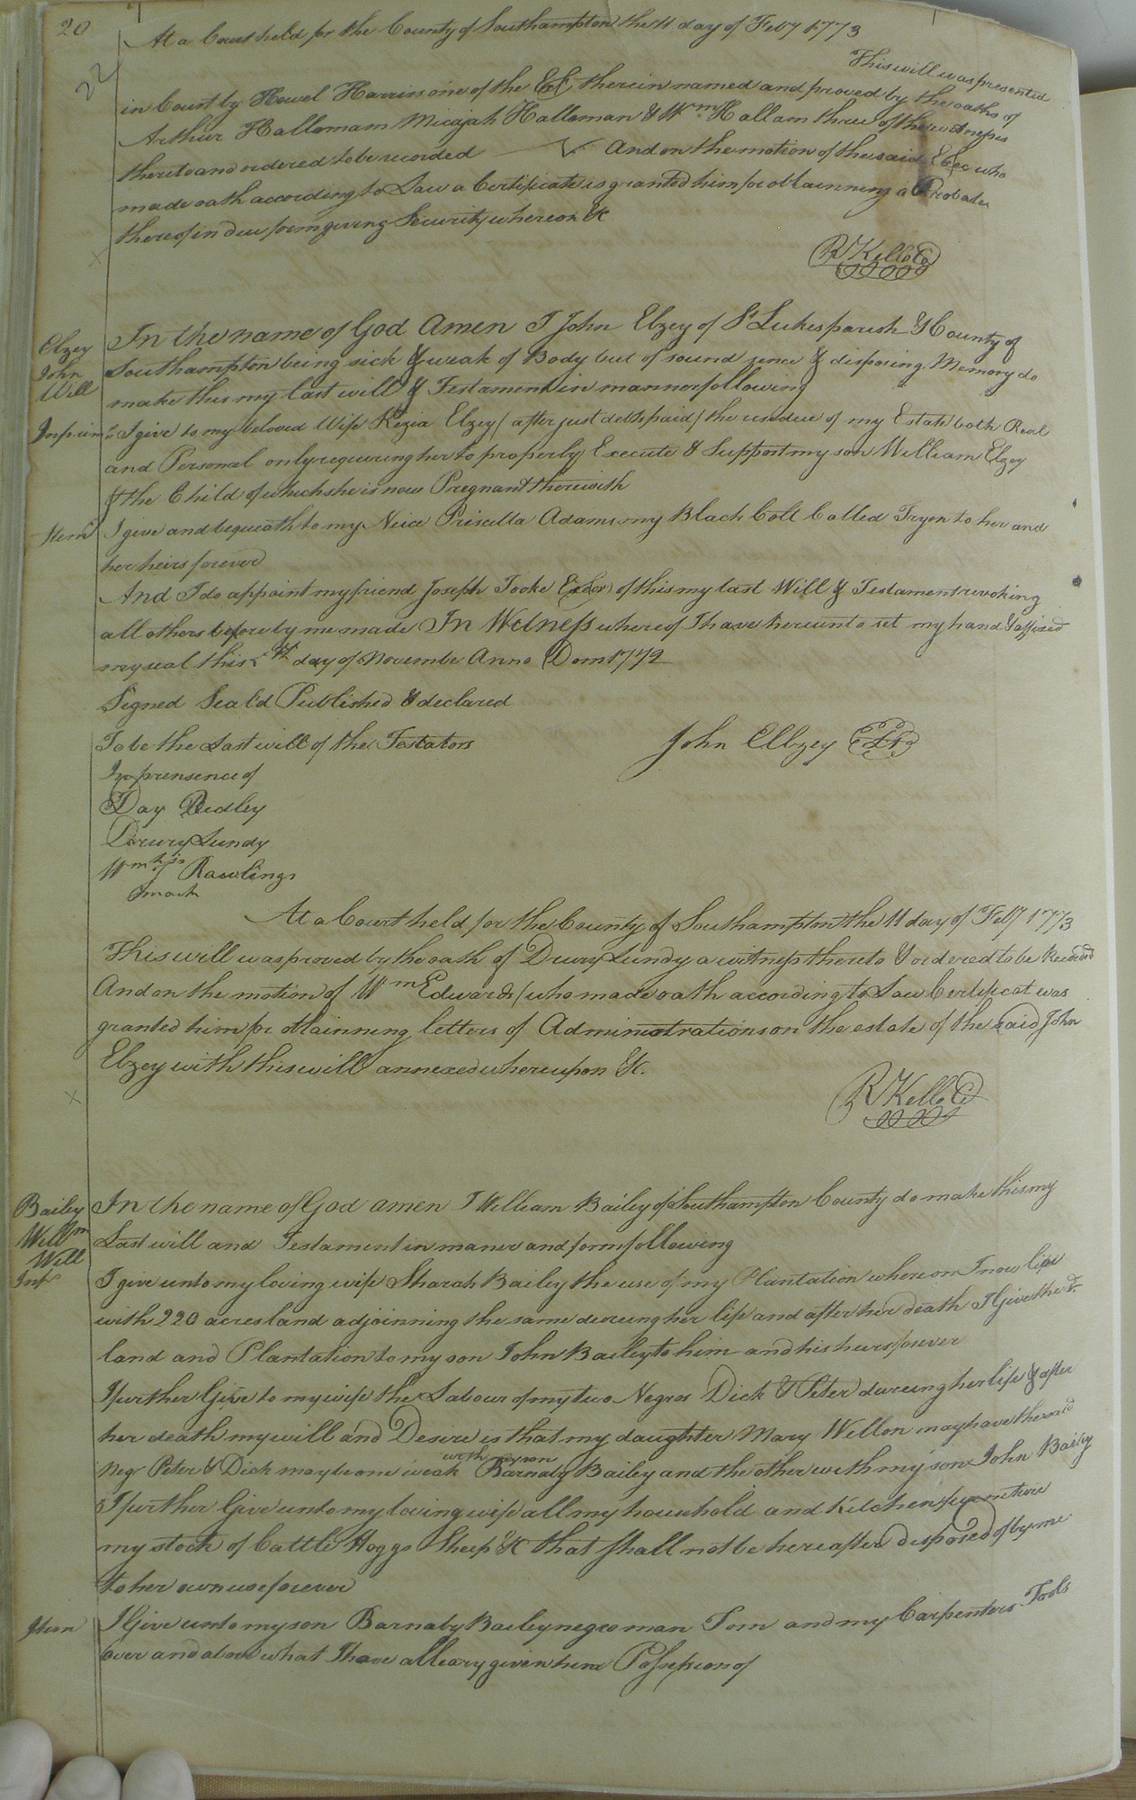 20
22
At a Court held for the County of Southampton the 11 day of Feby 1773
This will was presented
in Court by Howel Harris one of the Exf. therein named and proved by the oaths of
Arthur Hallomam Micajah Halleman & Wm Hallam three of the witnesses
thereto and ordered to be recorded And on the motion of the said Exec who
made oath according to Law a Certificate is granted him for obtainning a Probate
thereof in due form giving Security whereon &c
R Kello C
Elzey
John
Will
In the name of God Amen I John Elzey of St Lukes parish & County of
Southampton being sick & weak of Body but of sound sence & disposing Memory do
make this my last will & Testament in manner following
I give to my beloved Wife Kezia Elzey (after just debts paid) the residue of my Estate both Real
and Personal only requiring her to properly Execute & Support my son William Elzey
& the Child of which she is now Pregnant therewith
Item I give and bequeath to my Neice Priscilla Adams my Black Colt Called Tryon to her and
her heirs forever
And I do appoint my friend Joseph Tooke Exor of this my last Will & Testament revoking
all others before by me made In Witness whereof I have hereunto set my hand & affixed
my seal this day of November Anno Dom 1772
Signed Seald Published & declared
To be the Last will of the Testators John Elbzey
In prensence of
Day Ridley
Drury Lundy
Wm his Rawlings
mark
At a Court held for the County of Southampton the 11 day of Feby 1773
This will was proved by the oath of Drury Lundy a witness thereto & ordered to be Recorded
And on the motion of Wm Edwards (who made oath according to Law Certificat was
granted him for obtainning letters of Administrations on the estate of the said John
Elzey with this will annexed whereupon &c.
R Kello C
Bailey
Willm
Will
In the name of God amen I William Bailey of Southampton County do make this my
Last will and Testament in maner and form following
Inp I give unto my loving wife Sharah Bailey the use of my Plantation whereon I now live
with 220 acres land adjoinning the same dureing her life and after her death I Give the sd
land and Plantation to my son John Bailey to him and his heirs forever
I further Give to my wife the Labour of my two Negros Dick & Peter dureing her life & after
her death my will and Desire is that my daughter Mary Wellon may have them
with my son
Negr Peter & Dick may be one weak Barnaby Bailey and the other with my son John Bailey
I further Give unto my loving wife all my household and Kitchen furneture
my stock of Cattle Hoggs Sheep &c that shall not be hereafter disposed of by me
to her own use forever
Item I Give unto my son Barnaby Bailey negro man Tom and my Carpenters Tools
over and above what I have alleary given him Possession of